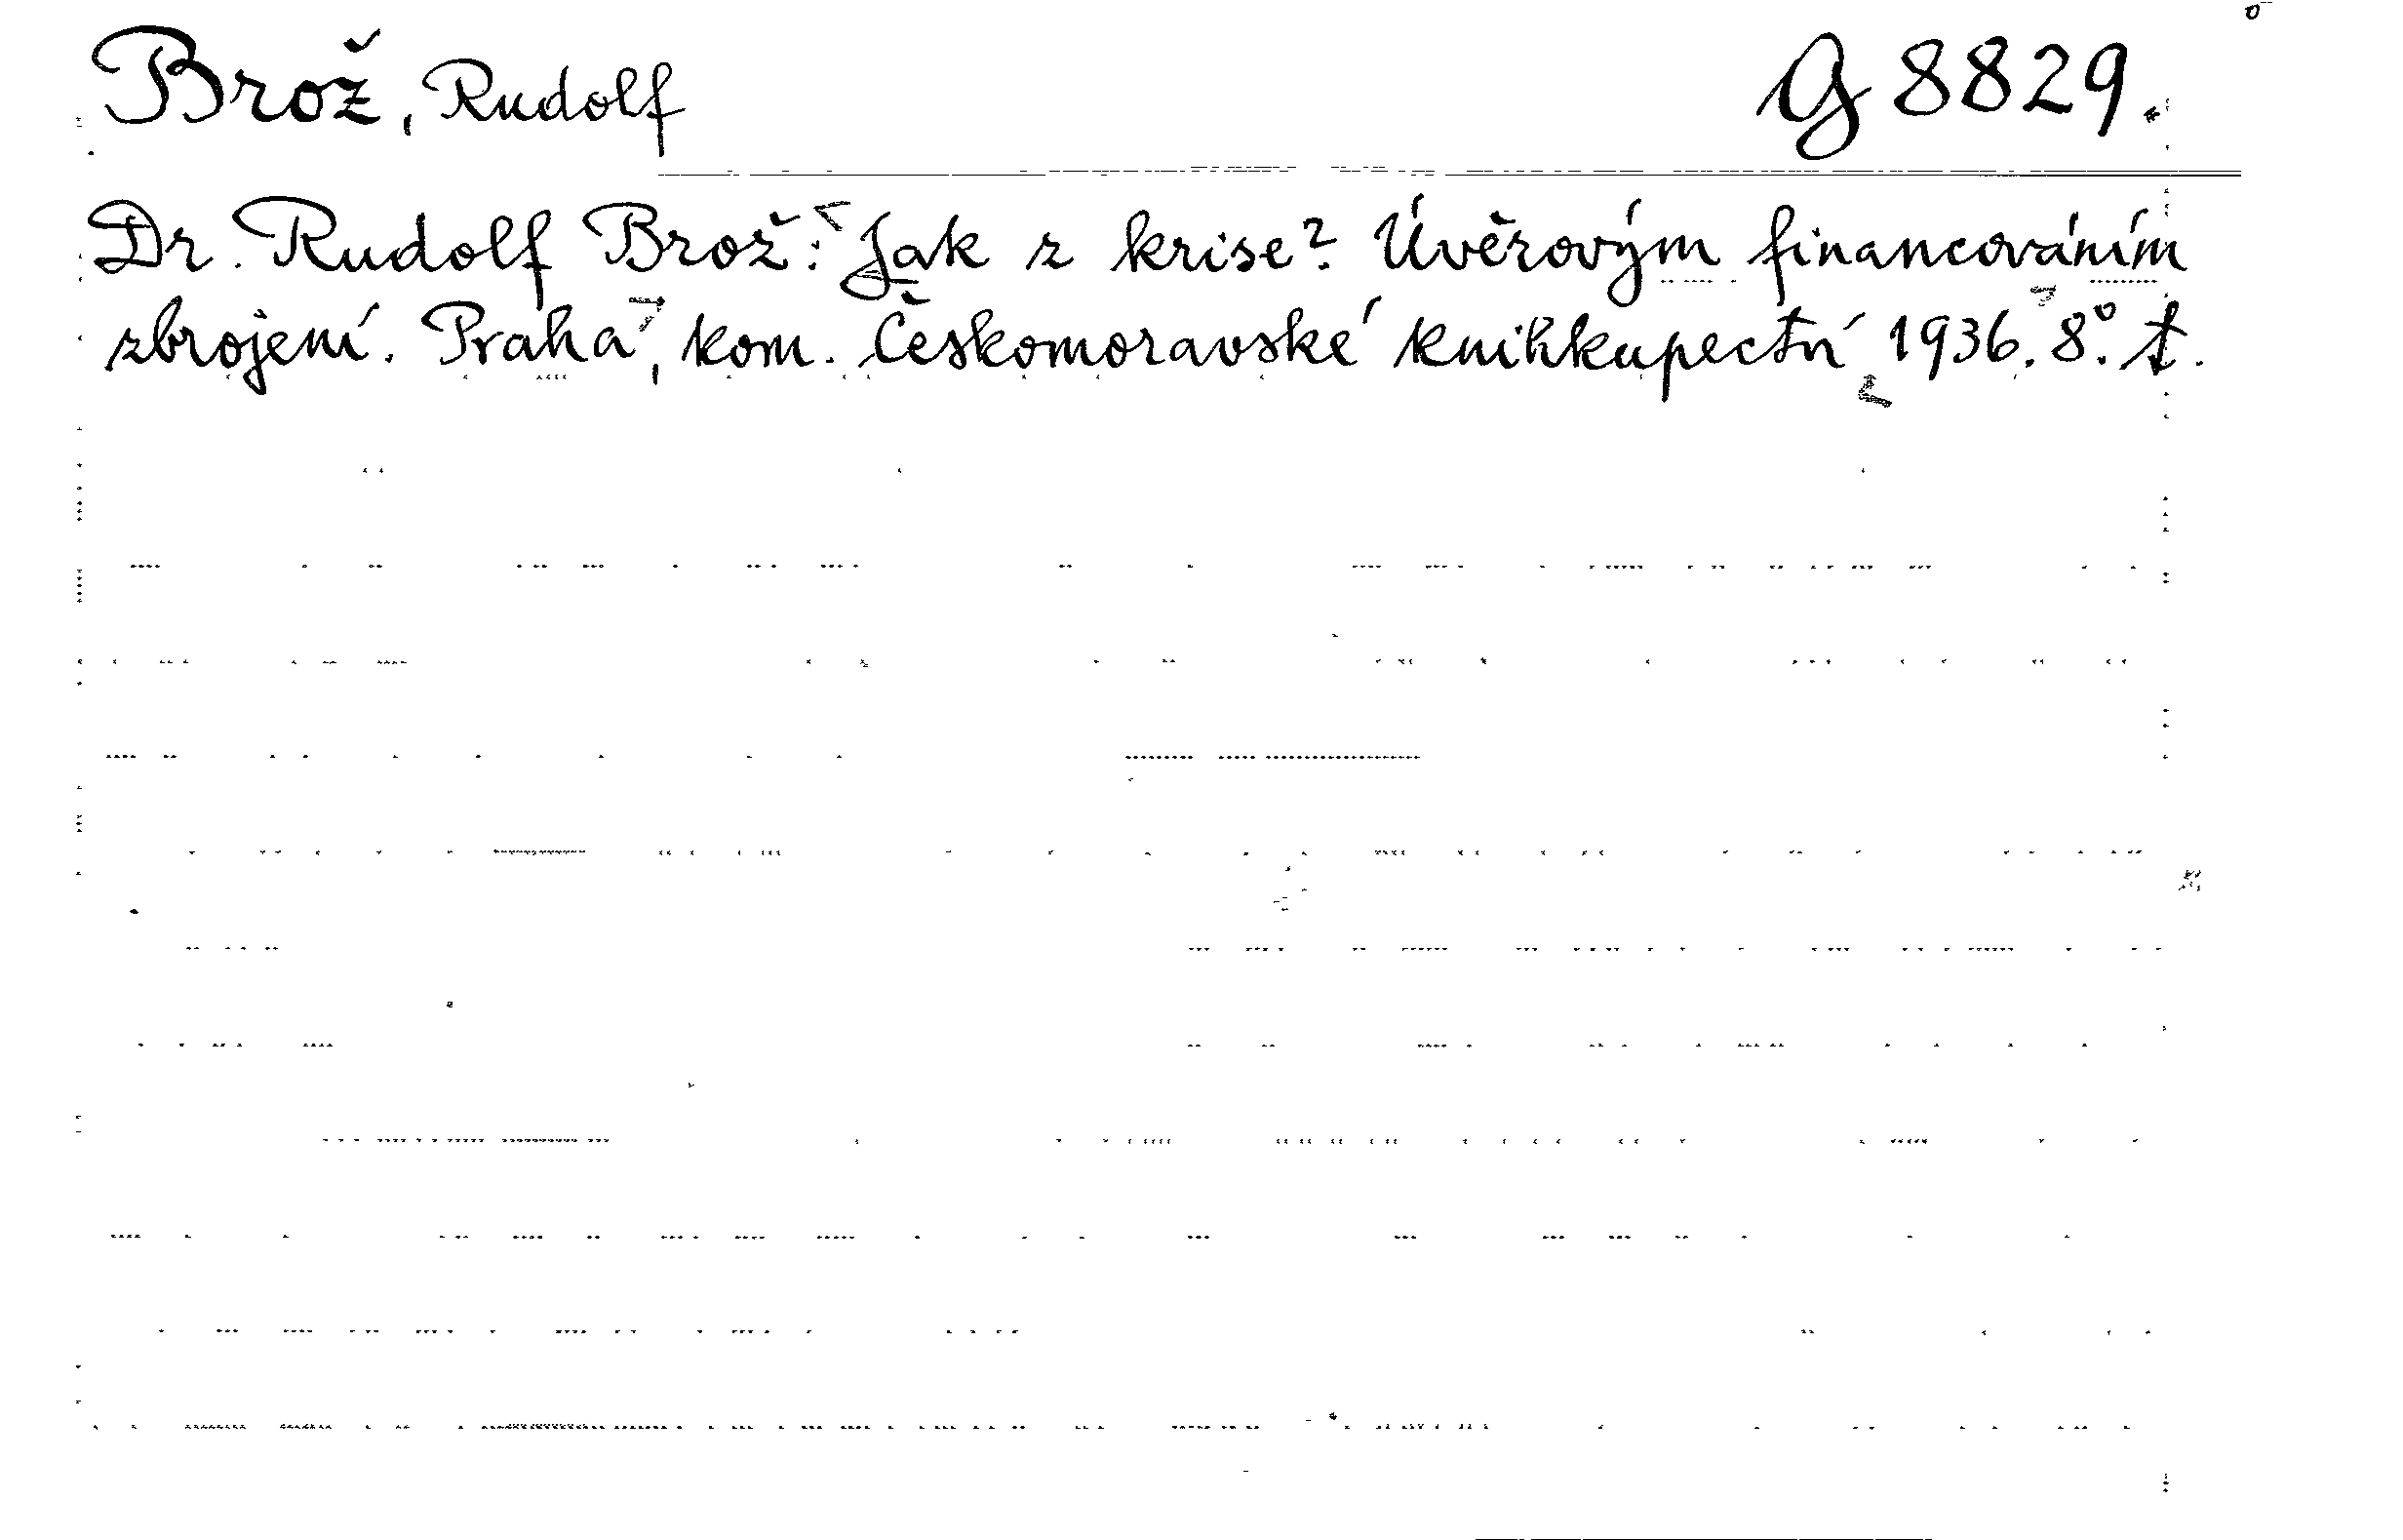 Brož, Rudolf G 8829.
Dr. Rudolf Brož: Jak z krise? Úvěrovým financováním
zbrojení. Praha, kom. Českomoravské knihkupectví 1936. 8°. t.